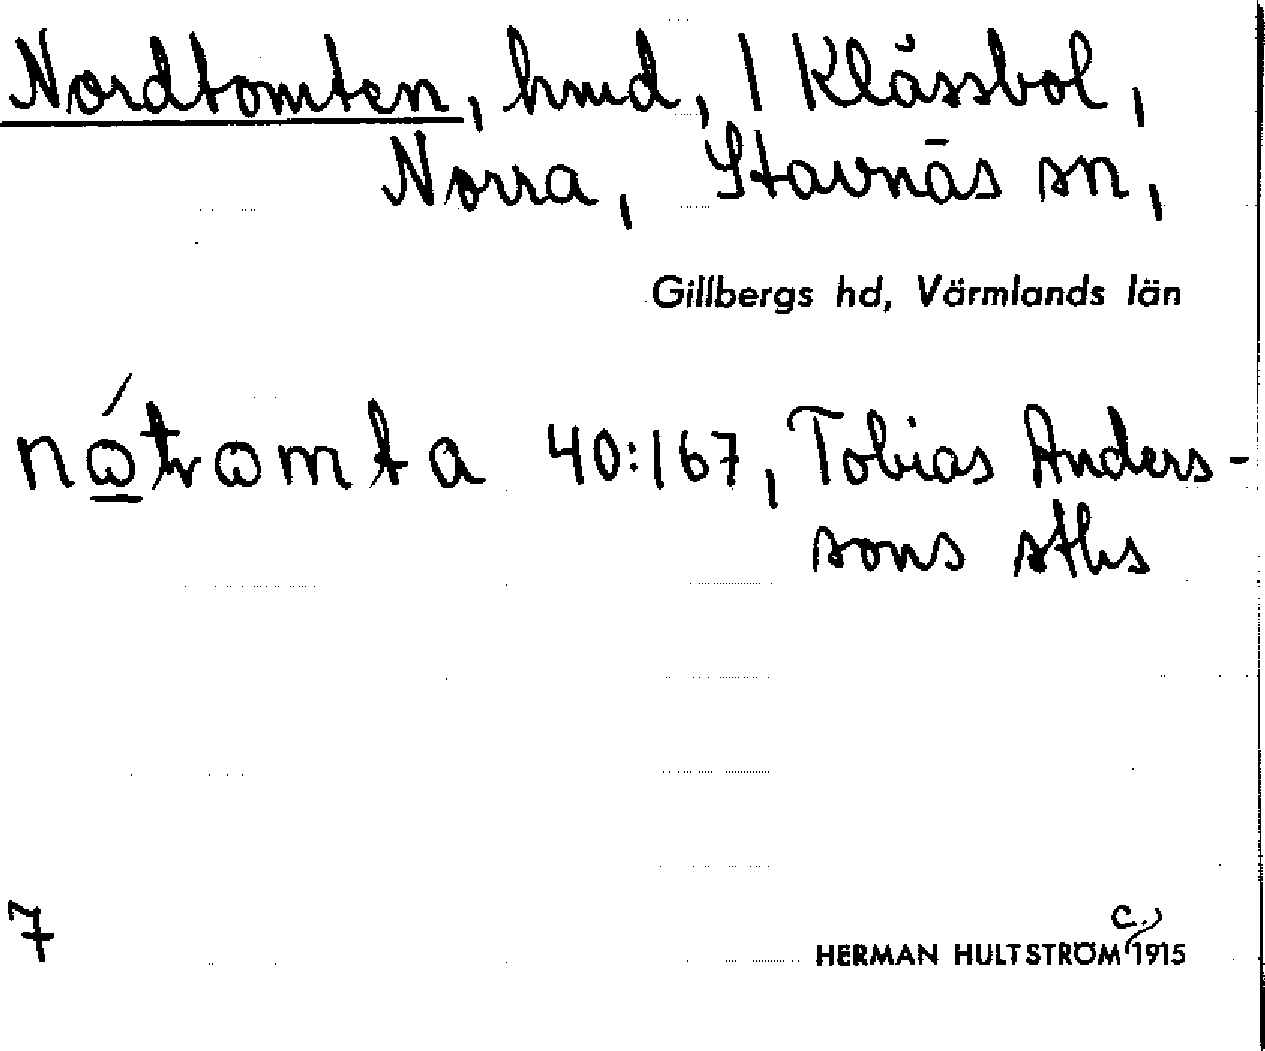 Nordtomten, hmd, 1 Klässbol,
Norra, Stavnäs sn,
Gillbergs hd, Värmlands län
nó̲tromta 40:167, Tobias Anders-
sons sths
7
HERMAN HULTSTRÖM c. 1915